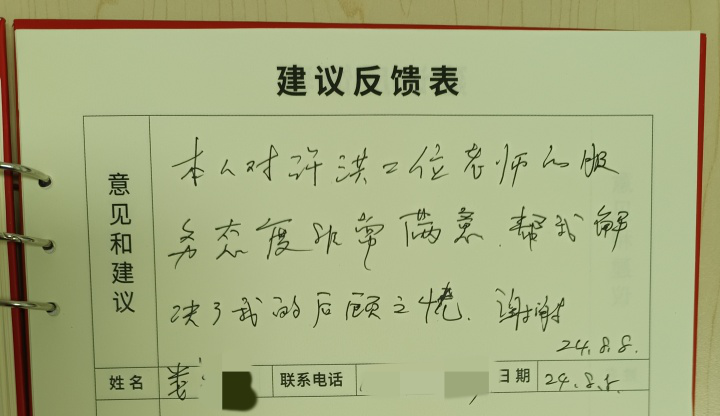 建议反馈表
意见和建议
本人对许洪二位老师的服
务态度非常满意.帮我解
决了我的后顾之忧.谢谢
24.8.8.
姓名 娄 联系电话 日期 24.8.8.